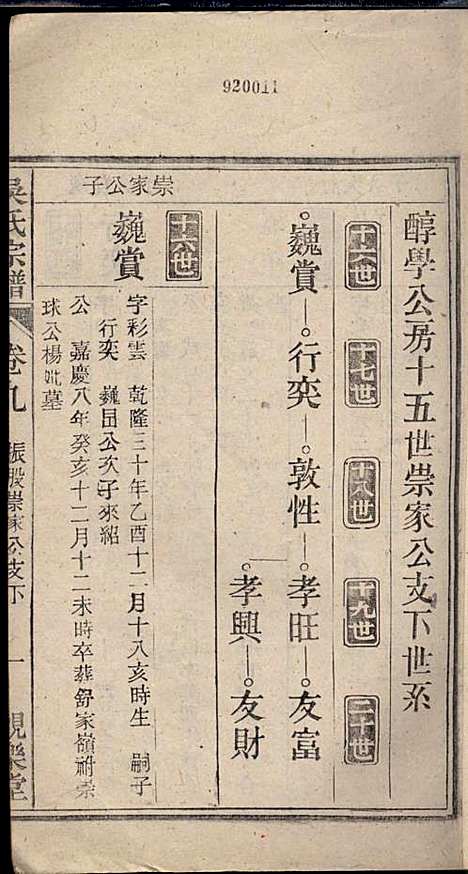 920011
醇學公房十五世崇家公支下世系
十六世
十七世
十八世
十九世
二十世
巍賞 行奕 敦性 孝旺 友富
孝興 友財
十六世
崇家公子
巍賞
字彩雲 乾隆三十年乙酉十二月十八亥時生 嗣子
行奕 巍昌公次子來紹
公 嘉慶八年癸亥十二月十二未時卒葬舒家嶺祔崇
球公楊妣墓
吳氏宗譜 卷九 振股崇家公支下 一 觀樂堂